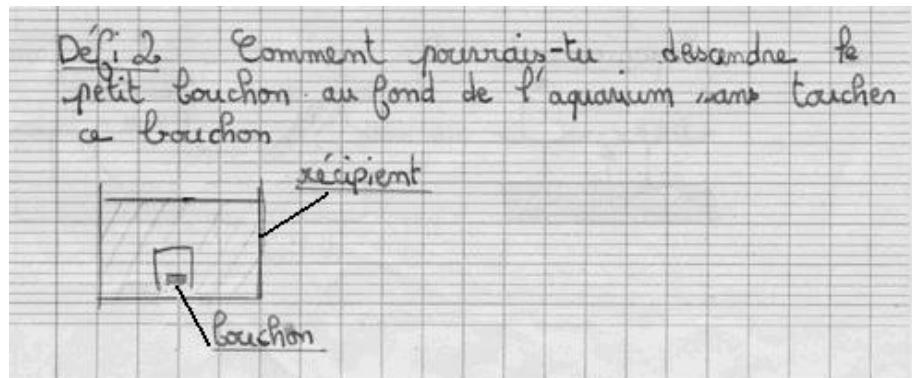 Défi 2 Comment pourrais-tu descendre le
petit bouchon au fond de l'aquarium sans toucher
ce bouchon
récipient
bouchon